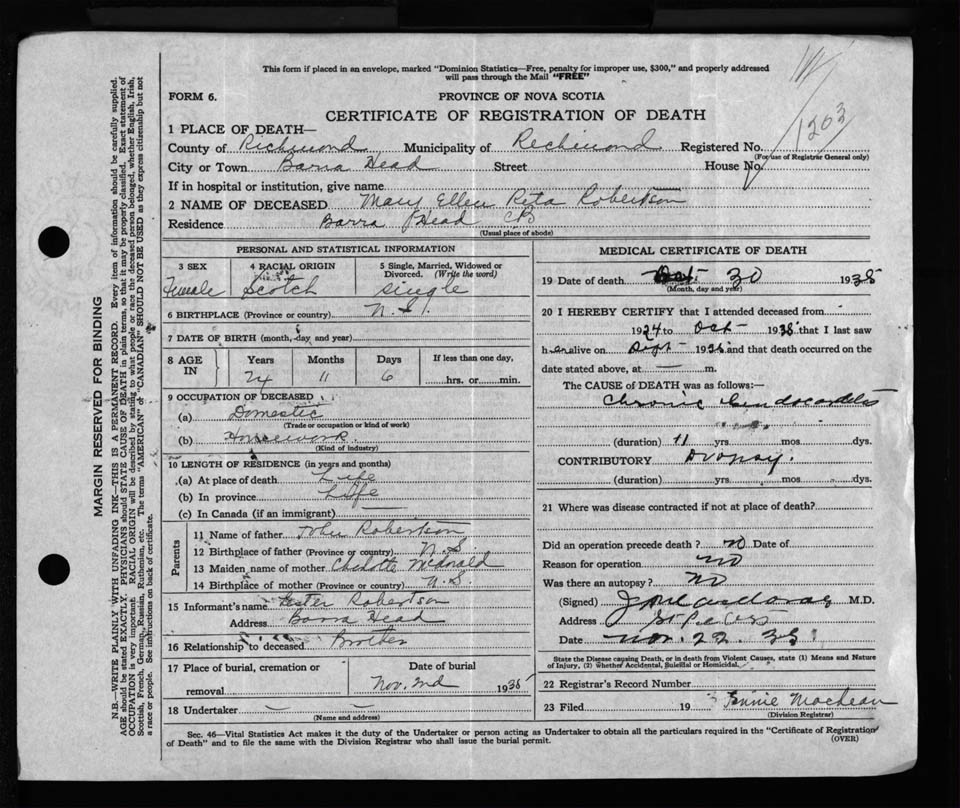 This form if placed in an envelope, marked "Dominion Statistics—Free, penalty for improper use, $300," and properly addressed
will pass through the Mail "FREE"
FORM 6.
PROVINCE OF NOVA SCOTIA
CERTIFICATE OF REGISTRATION OF DEATH
1303
1 PLACE OF DEATH—
County of Richmond Municipality of Richmond Registered No.
(For use of Registrar General only)
City or Town Barra Head Street House No.
If in hospital or institution, give name
2 NAME OF DECEASED Mary Ellen Reta Robertson
Residence Barra Head CB
(Usual place of abode)
PERSONAL AND STATISTICAL INFORMATION
3 SEX
Female
4 RACIAL ORIGIN
Scotch
5 Single, Married, Widowed or
Divorced. (Write the word)
single
6 BIRTHPLACE (Province or country) N.S.
7 DATE OF BIRTH (month, day and year)
8 AGE IN
Years Months Days If less than one day,
24 11 6 hrs. or min.
9 OCCUPATION OF DECEASED
(a) Domestic
(Trade or occupation or kind of work)
(b) Housework
(Kind of industry)
10 LENGTH OF RESIDENCE (in years and months)
(a) At place of death Life
(b) In province Life
(c) In Canada (if an immigrant)
Parents
11 Name of father John Robertson
12 Birthplace of father (Province or country) N.S
13 Maiden name of mother McDonald
14 Birthplace of mother (Province or country) N.S
15 Informant's name Lester Robertson
Address Barra Head
16 Relationship to deceased Brother
17 Place of burial, cremation or
removal
Date of burial
Nov. 2nd 1935
18 Undertaker — —
(Name and address)
MEDICAL CERTIFICATE OF DEATH
19 Date of death Oct 30 1935
(Month, day and year)
20 I HEREBY CERTIFY that I attended deceased from
1924 to Oct 1935 that I last saw
her alive on Sept 1935 and that death occurred on the
date stated above, at — m.
The CAUSE of DEATH was as follows:—
Chronic Endocarditis
(duration) 11 yrs mos dys.
CONTRIBUTORY Dropsy.
(duration) yrs mos dys.
21 Where was disease contracted if not at place of death?
Did an operation precede death? no Date of
Reason for operation no
Was there an autopsy? no
(Signed) M.D.
Address St Peters
Date Nov. 22 35
State the Disease causing Death, or in death from Violent Causes, state (1) Means and Nature
of Injury, (2) Whether Accidental, Suicidal or Homicidal.
22 Registrar's Record Number
23 Filed 19 Fannie MacLean
(Division Registrar)
Sec. 46—Vital Statistics Act makes it the duty of the Undertaker or person acting as Undertaker to obtain all the particulars required in the "Certificate of Registration
of Death" and to file the same with the Division Registrar who shall issue the burial permit.
(OVER)
MARGIN RESERVED FOR BINDING
N.B.—WRITE PLAINLY WITH UNFADING INK—THIS IS A PERMANENT RECORD. Every item of information should be carefully supplied.
AGE should be stated EXACTLY. PHYSICIANS should STATE CAUSE OF DEATH in plain terms, so that it may be properly classified. Exact statement of
OCCUPATION is very important. RACIAL ORIGIN will be described by stating to what people or race the deceased person belonged, whether English, Irish,
Scottish, French, German, Russian, Ruthenian, etc. The terms "AMERICAN" or "CANADIAN" SHOULD NOT BE USED as they express citizenship but not
a race or people. See instructions on back of certificate.